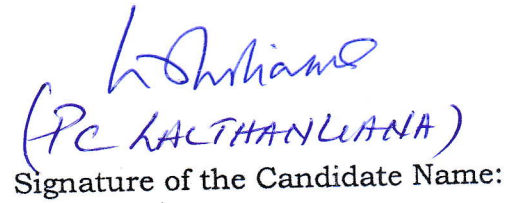 (PC LALTHANLIANA)
Signature of the Candidate Name: